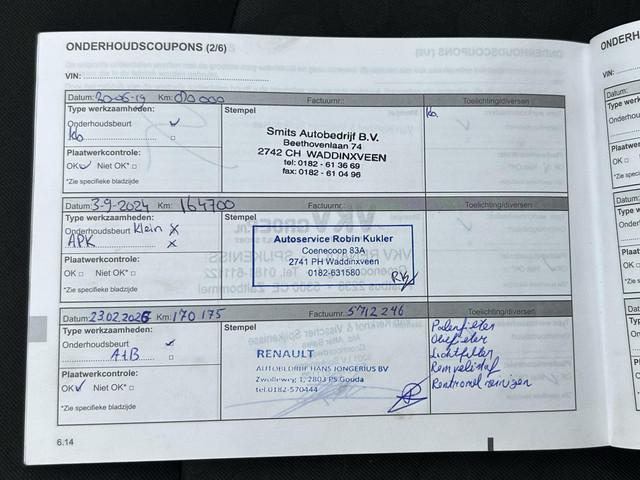 ONDERHOUDSCOUPONS (2/6)
VIN:
Datum: 20-06-19 Km: Factuurnr.: Toelichting/diversen
Type werkzaamheden:
Onderhoudsbeurt
Plaatwerkcontrole:
OK Niet OK*
*Zie specifieke bladzijde
Stempel
Smits Autobedrijf B.V.
Beethovenlaan 74
2742 CH WADDINXVEEN
tel: 0182 - 61 36 69
fax: 0182 - 61 04 96
Datum: 3-9-2024 Km: 164700 Factuurnr.: Toelichting/diversen
Type werkzaamheden:
Onderhoudsbeurt Klein X
APK X
Plaatwerkcontrole:
OK Niet OK*
*Zie specifieke bladzijde
Stempel
Autoservice Robin Kukler
Coenecoop 83A
2741 PH Waddinxveen
0182-631580
Datum: 23.02.2026 Km: 170 175 Factuurnr.: 5712246 Toelichting/diversen
Type werkzaamheden:
Onderhoudsbeurt
A+B
Plaatwerkcontrole:
OK Niet OK*
*Zie specifieke bladzijde
Stempel
RENAULT
AUTOBEDRIJF HANS JONGERIUS BV
Zwolleweg 1, 2803 PS Gouda
tel. 0182-570444
Polenfilter
Oliefilter
Luchtfilter
Remvloeistof
6.14
ONDERH
VIN:
Datum:
Type we
Onderhou
Plaatwer
OK
*Zie spec